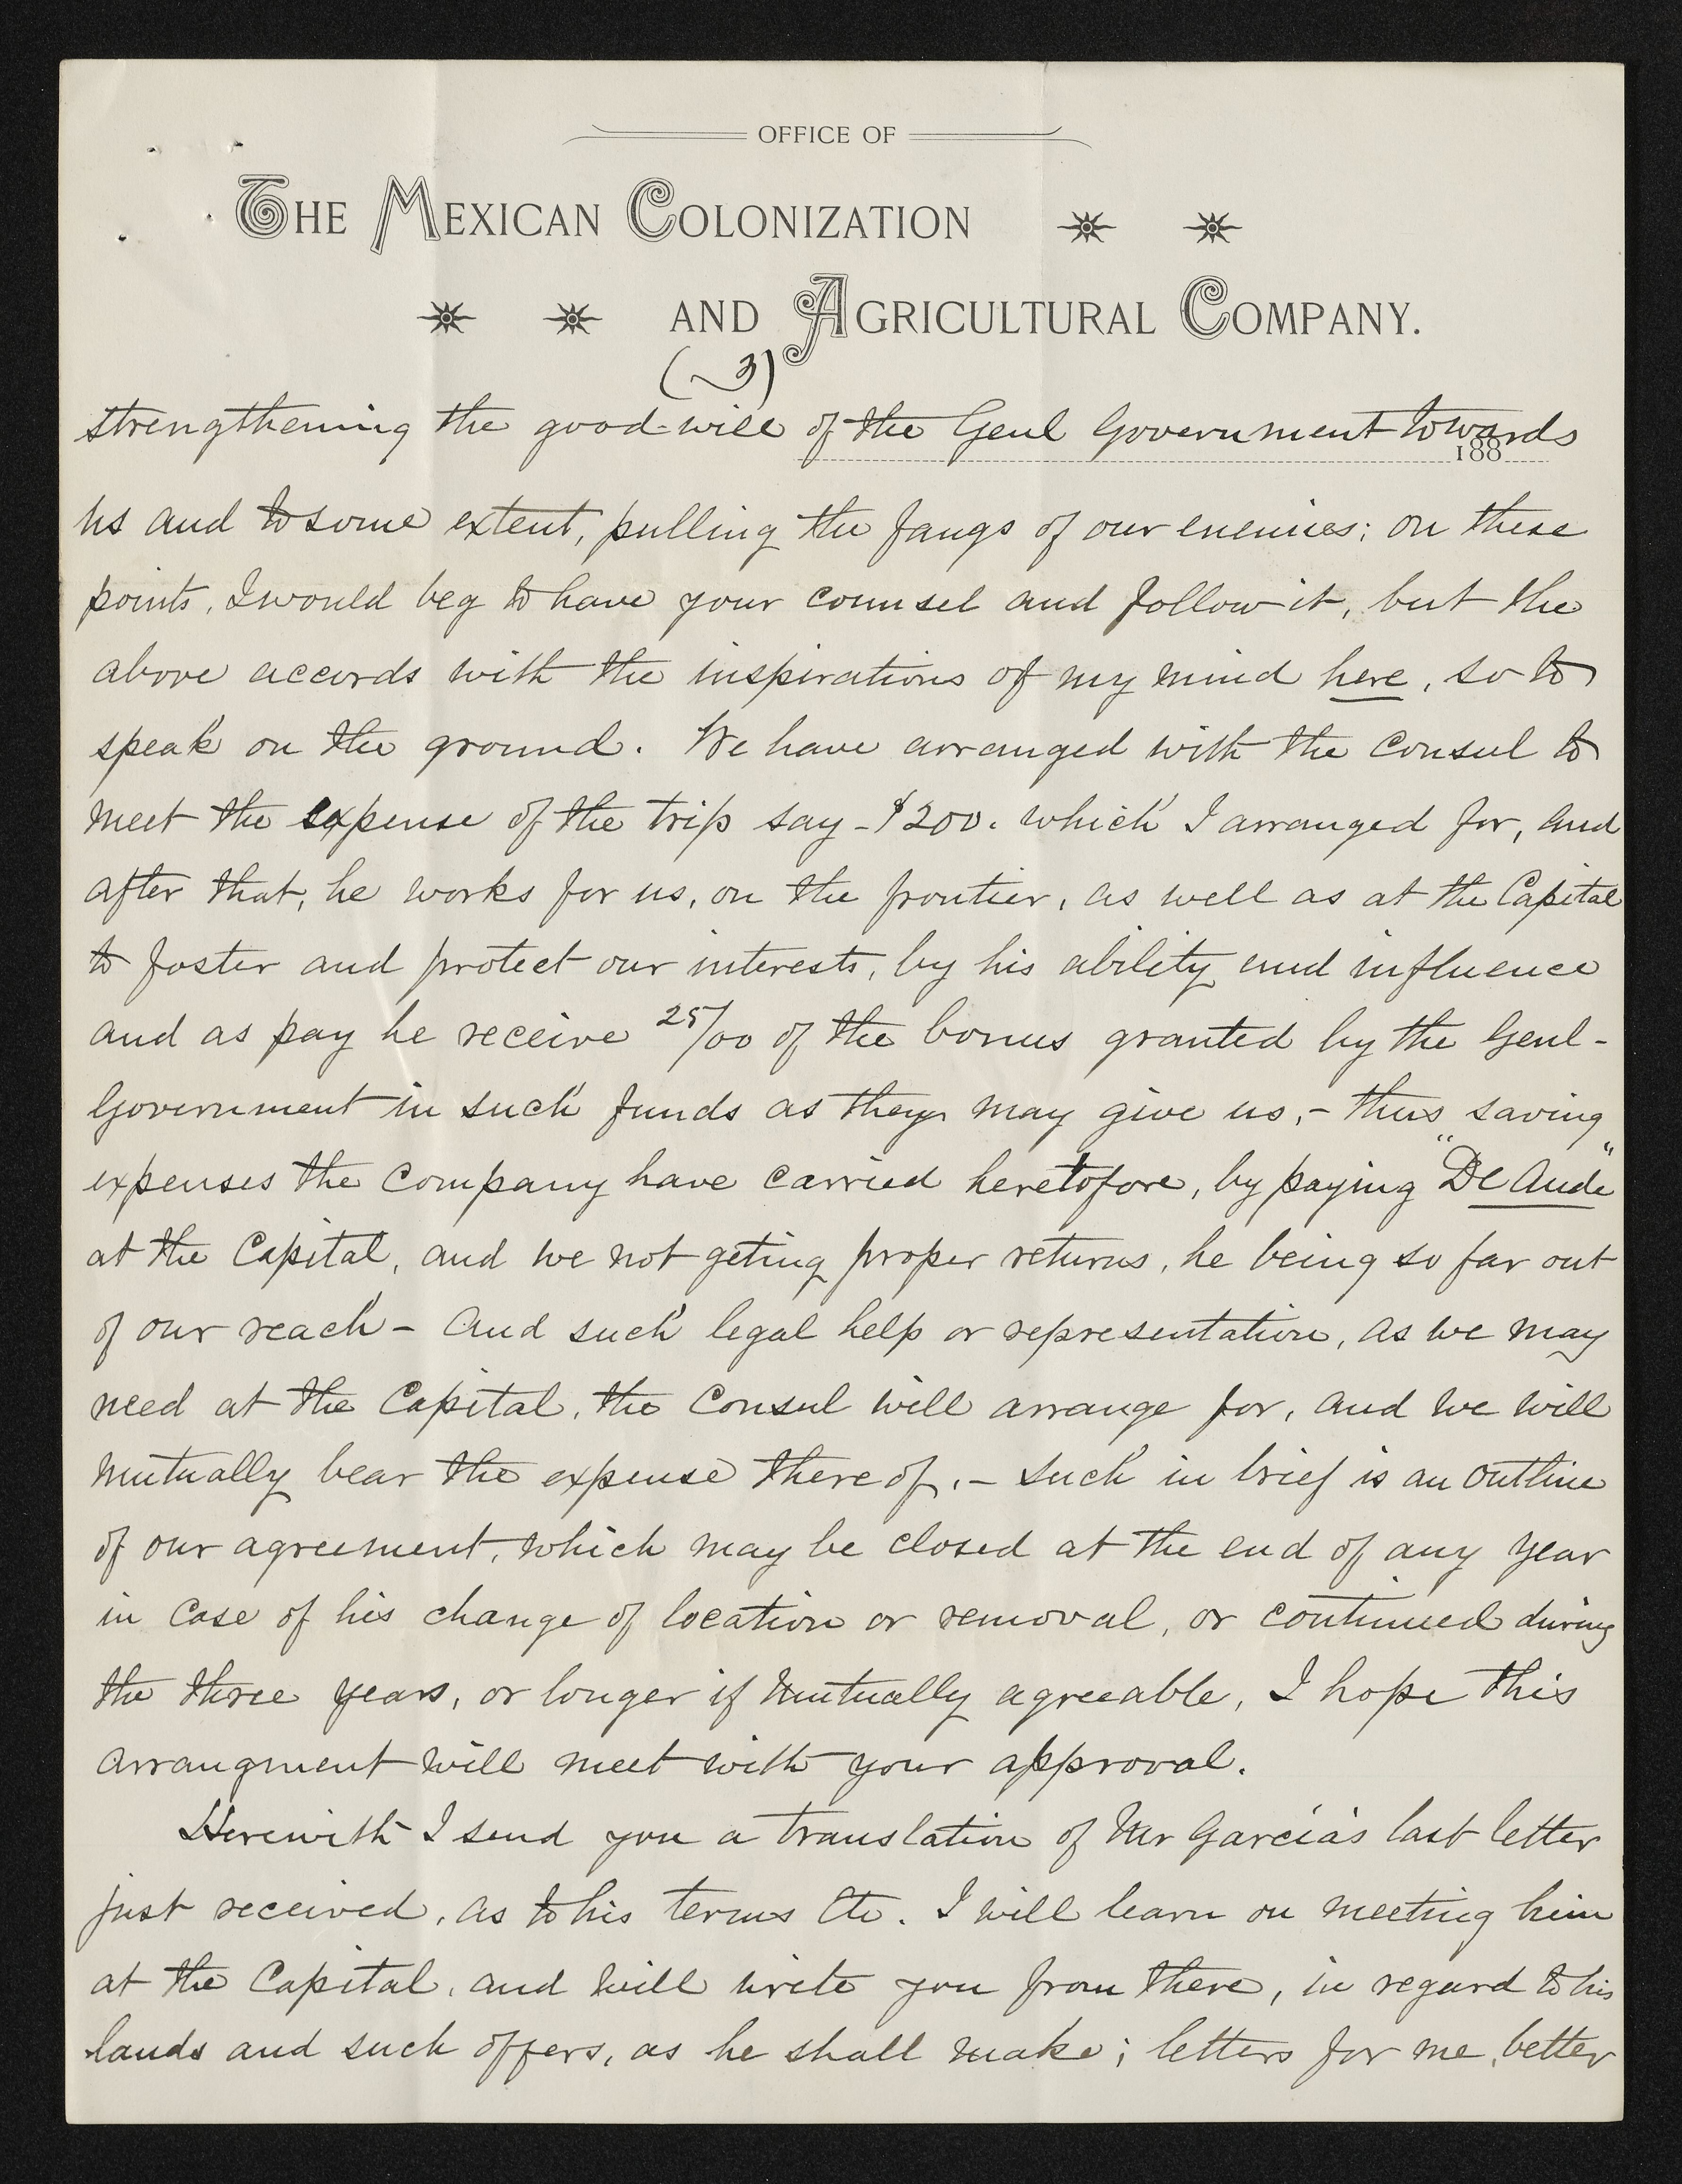 OFFICE OF
THE MEXICAN COLONIZATION
AND AGRICULTURAL COMPANY.
(3)
strengthening the good-will of the Genl Government towards
188
us and to some extent, pulling the fangs of our enemies; on these
points, I would beg to have your counsel and follow it, but the
above accords with the inspirations of my mind here, so to
speak on the ground. We have arranged with the Consul to
meet the expense of the trip say - $200. which I arranged for, and
after that, he works for us, on the frontier, as well as at the Capital
to foster and protect our interests, by his ability and influence
and as pay he receive 25/00 of the bonus granted by the Genl-
Government in such funds as they may give us, - thus saving
expenses the Company have carried heretofore, by paying "De Aude"
at the Capital, and we not geting proper returns, he being so far out
of our reach - And such legal help or representation, as we may
need at the Capital, the Consul will arrange for, and we will
mutually bear the expense there of. - Such in brief is an outline
of our agreement, which may be closed at the end of any year
in case of his change of location or removal, or continued during
the three years, or longer if mutually agreeable, I hope this
arrangment will meet with your approval.
Herewith I send you a translation of Mr Garcia's last letter
just received, as to his terms Etc. I will learn on meeting him
at the Capital, and will write you from there, in regard to his
lands and such offers, as he shall make; letters for me, better